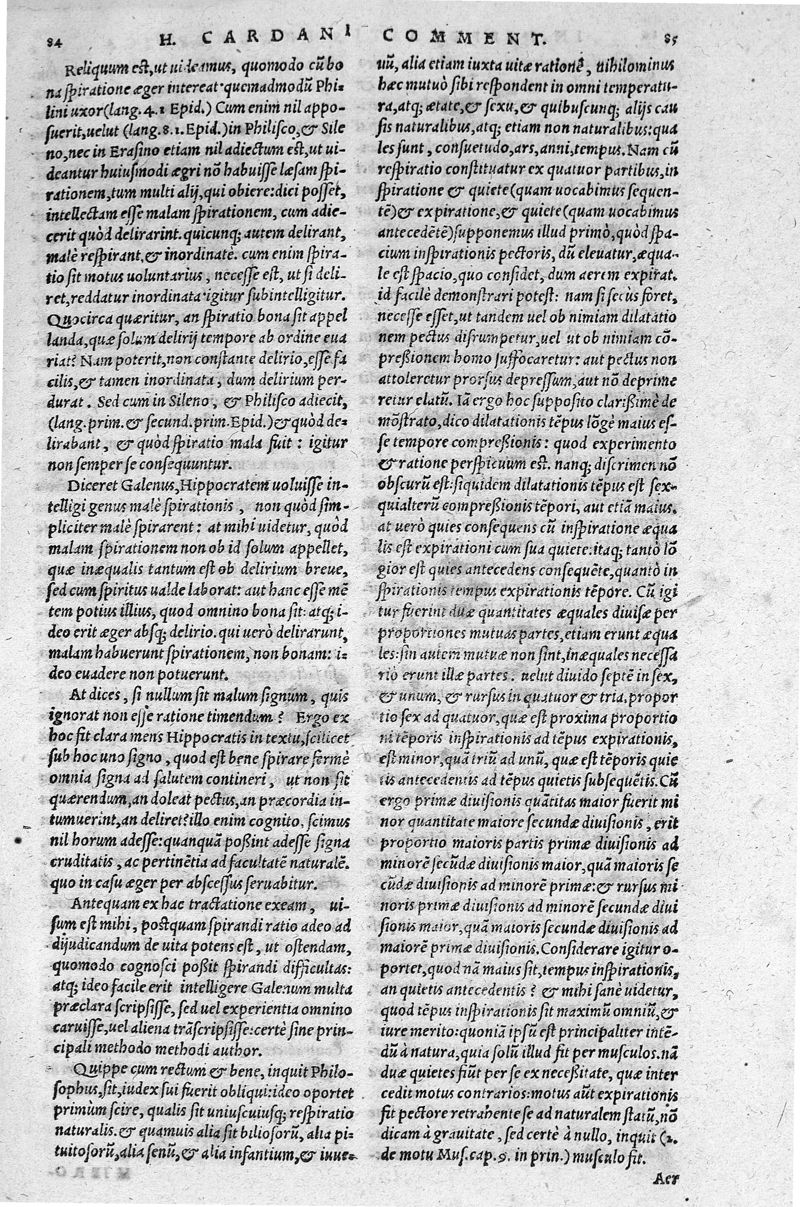 84 H. CARDANI COMMENT. 85
Reliquum est, ut uideamus, quomodo cū bo
na spiratione æger intereat quemadmodū Phi
lini uxor (lang. 4. 1 Epid.) Cum enim nil appo-
suerit, uelut (lang. 8. 1. Epid.) in Philisco, & Sile
no, nec in Erasino etiam nil adiectum est, ut ui-
deantur huiusmodi ægri nō habuisse læsam spi-
rationem, tum multi alij, qui obiere: dici posset,
intellectam esse malam spirationem, cum adie-
cerit quòd delirarint. quicunq; autem delirant,
malè respirant, & inordinate. cum enim spira-
tio sit motus uoluntarius, necesse est, ut si deli-
ret, reddatur inordinata igitur subintelligitur.
Quocirca quæritur, an spiratio bona sit appel
landa, quæ solum delirij tempore ab ordine eua
riat? Nam poterit, non constante delirio, esse fa
cilis, & tamen inordinata, dum delirium per-
durat. Sed cum in Sileno, & Philisco adiecit,
(lang. prim. & secund. prim. Epid.) & quòd de-
lirabant, & quòd spiratio mala fuit: igitur
non semper se consequuntur.
Diceret Galenus, Hippocratem uoluisse in-
telligi genus malè spirationis, non quòd sim-
pliciter malè spirarent: at mihi uidetur, quòd
malam spirationem non ob id solum appellet,
quæ inæqualis tantum est ob delirium breue,
sed cum spiritus ualde laborat: aut hanc esse mē
tem potius illius, quod omnino bona sit: atq; i-
deo erit æger absq; delirio. qui uerò delirarunt,
malam habuerunt spirationem, non bonam: i-
deo euadere non potuerunt.
At dices, si nullum sit malum signum, quis
ignorat non esse ratione timendum? Ergo ex
hoc fit clara mens Hippocratis in textu, scilicet
sub hoc uno signo, quod est bene spirare fermè
omnia signa ad salutem contineri, ut non sit
quærendum, an doleat pectus, an præcordia in-
tumuerint, an deliret? illo enim cognito, scimus
nil horum adesse: quanquā poßint adesse signa
cruditatis, ac pertinētia ad facultatē naturalē.
quo in casu æger per abscessus seruabitur.
Antequam ex hac tractatione exeam, ui-
sum est mihi, postquam spirandi ratio adeo ad
dijudicandum de uita potens est, ut ostendam,
quomodo cognosci poßit spirandi difficultas:
atq; ideo facile erit intelligere Galenum multa
præclara scripsisse, sed uel experientia omnino
caruisse, uel aliena trāscripsisse: certè sine prin-
cipali methodo methodi author.
Quippe cum rectum & bene, inquit Philo-
sophus, sit, iudex sui fuerit obliqui: ideo oportet
primum scire, qualis sit uniuscuiusq; respiratio
naturalis. & quamuis alia sit biliosorū, alia pi-
tuitosorū, alia senū, & alia infantium, & iuue-
uū, alia etiam iuxta uitæ rationē, nihilominus
hæc mutuò sibi respondent in omni temperatu-
ra, atq; ætate, & sexu, & quibuscunq; alijs cau
sis naturalibus, atq; etiam non naturalibus: qua
les sunt, consuetudo, ars, anni, tempus. Nam cū
respiratio constituatur ex quatuor partibus, in
spiratione & quiete (quam uocabimus sequen-
tē) & expiratione, & quiete (quam uocabimus
antecedētē) supponemus illud primò, quòd spa-
cium inspirationis pectoris, dū eleuatur, æqua-
le est spacio, quo consider, dum aerem expirat.
id facilè demonstrari potest: nam si secùs foret,
necesse esset, ut tandem uel ob nimiam dilatatio
nem pectus disrumpetur, uel ut ob nimiam cō-
preßionem homo suffocaretur: aut pectus non
attoleretur prorsus depressum, aut nō deprime
retur elatū. Iā ergo hoc supposito clarißimè de
mōstrato, dico dilatationis tēpus lōgè maius es-
se tempore compreßionis: quod experimento
& ratione perspicuum est. nanq; discrimen nō
obscurū est: siquidem dilatationis tēpus est sex-
quialterū compreßionis tēpori, aut etiā maius.
at uerò quies consequens cū inspiratione æqua
lis est expirationi cum sua quiete: itaq; tantò lō
gior est quies antecedens consequēte, quantò in
spirationis tempus expirationis tēpore. Cū igi
tur fuerint duæ quantitates æquales diuisæ per
proportiones mutuas partes, etiam erunt æqua
les: sin autem mutuæ non sint, inæquales necessa
riò erunt illæ partes. uelut diuido septē in sex,
& unum, & rursus in quatuor & tria. propor
tio sex ad quatuor, quæ est proxima proportio
ni tēporis inspirationis ad tēpus expirationis,
est minor, quā triū ad unū, quæ est tēporis quie
tis antecedentis ad tēpus quietis subsequētis. Cū
ergo primæ diuisionis quātitas maior fuerit mi
nor quantitate maiore secundæ diuisionis, erit
proportio maioris partis primæ diuisionis ad
minorē secūdæ diuisionis maior, quā maioris se
cūdæ diuisionis ad minorē primæ: & rursus mi
noris primæ diuisionis ad minorē secundæ diui
sionis maior, quā maioris secundæ diuisionis ad
maiorē primæ diuisionis. Considerare igitur o-
portet, quod nā maius sit, tempus inspirationis,
an quietis antecedentis? & mihi sanè uidetur,
quod tēpus inspirationis sit maximū omniū, &
iure merito: quoniā ipsū est principaliter intē-
dū à natura, quia solū illud fit per musculos. nā
duæ quietes fiūt per se ex neceßitate, quæ inter
cedit motus contrarios: motus aūt expirationis
fit pectore retrahente se ad naturalem statū, nō
dicam à grauitate, sed certè à nullo, inquit (2.
de motu Mus. cap. 9. in prin.) musculo fit.
Aer